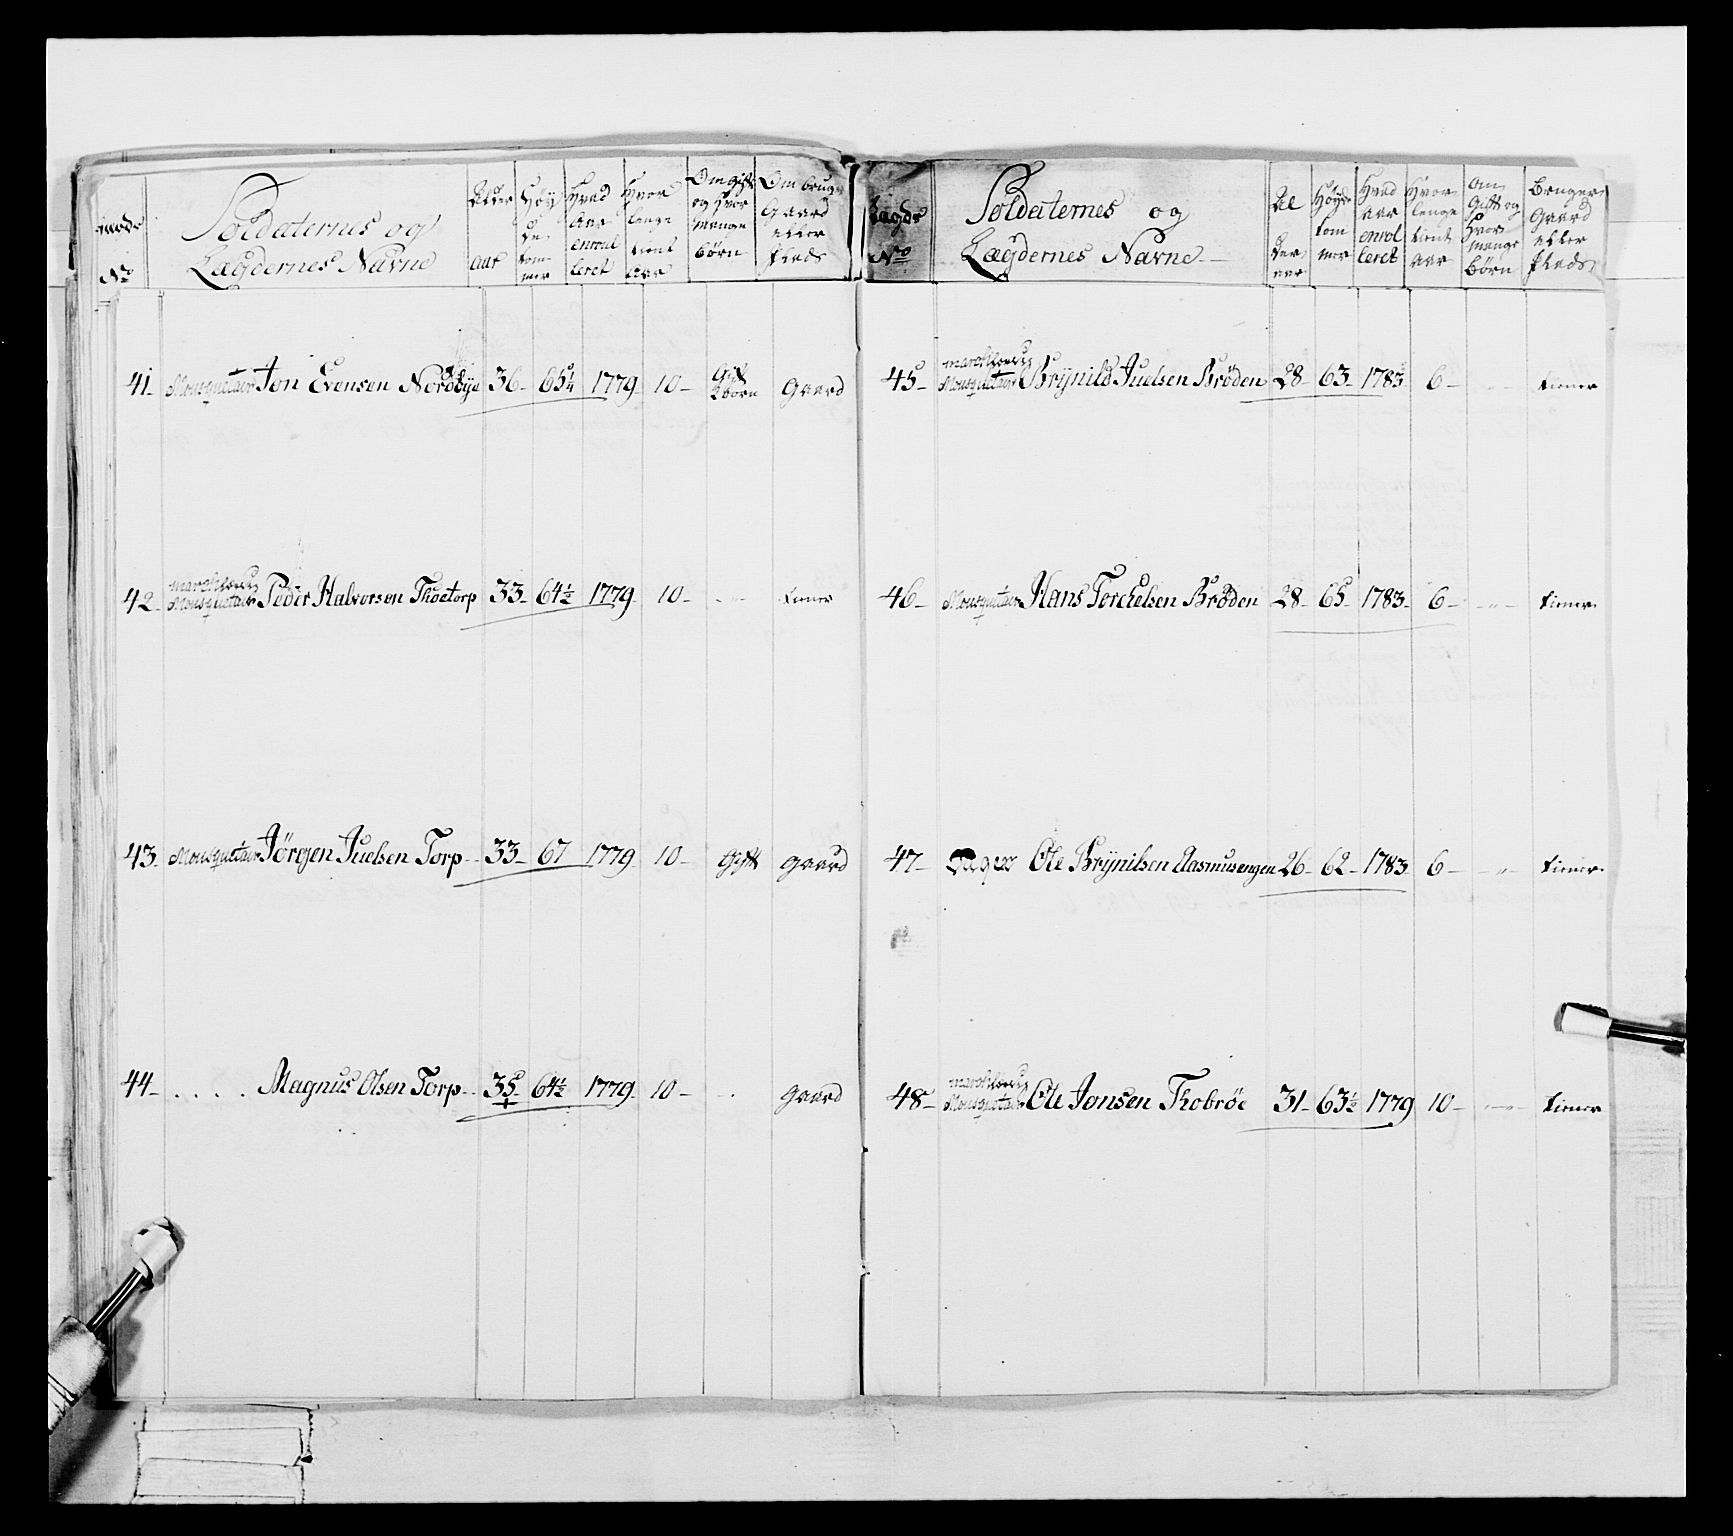 No Soldaternes og Lægdernes Navne Alder Aar Høyde tommer Hvad Aar enroulleret Hvor lenge tient Aar Om gift og hvor mange børn Om bruger Gaard eller Plads
41. Mousquetair Jon Evensen Nordbye 36 - 65 1/4 1779 10 - Gift 2 børn Gaard
42 - Mousquetair Peder Halvorsen Thoetorp 33 - 64 1/2 1779 10 - tiener
43. Mousquetair Jörgen Juelsen Torp - 33 - 67 1779 10 - Gift Gaard
44 - . . . . Magnus Olsen Torp - 35 - 64 1/2 1779 10 - Gaard
Lægds No Soldaternes og Lægdernes Navne - Al der aar Høyde tommer Hvad aar enrolleret Hvor lenge tient aar Om Gift og Hvor mange børn Bruger Gaard eller Plads
45 - Mousquetair Brÿnild Juelsen Brøden 28 - 63 - 1783 6 - - " - tiener
46 - Mousquetair Hans Torchelsen Brøden 28 - 65 - 1783 - 6 - - " - tiener
47 - Jæger Ole Brÿnilsen Aasmusengen 26 - 62 - 1783 6 - - " - tiener
48 - Mousquetair Ole Jonsen Thobröe 31 - 63 1/2 1779 10 - - " - tiener